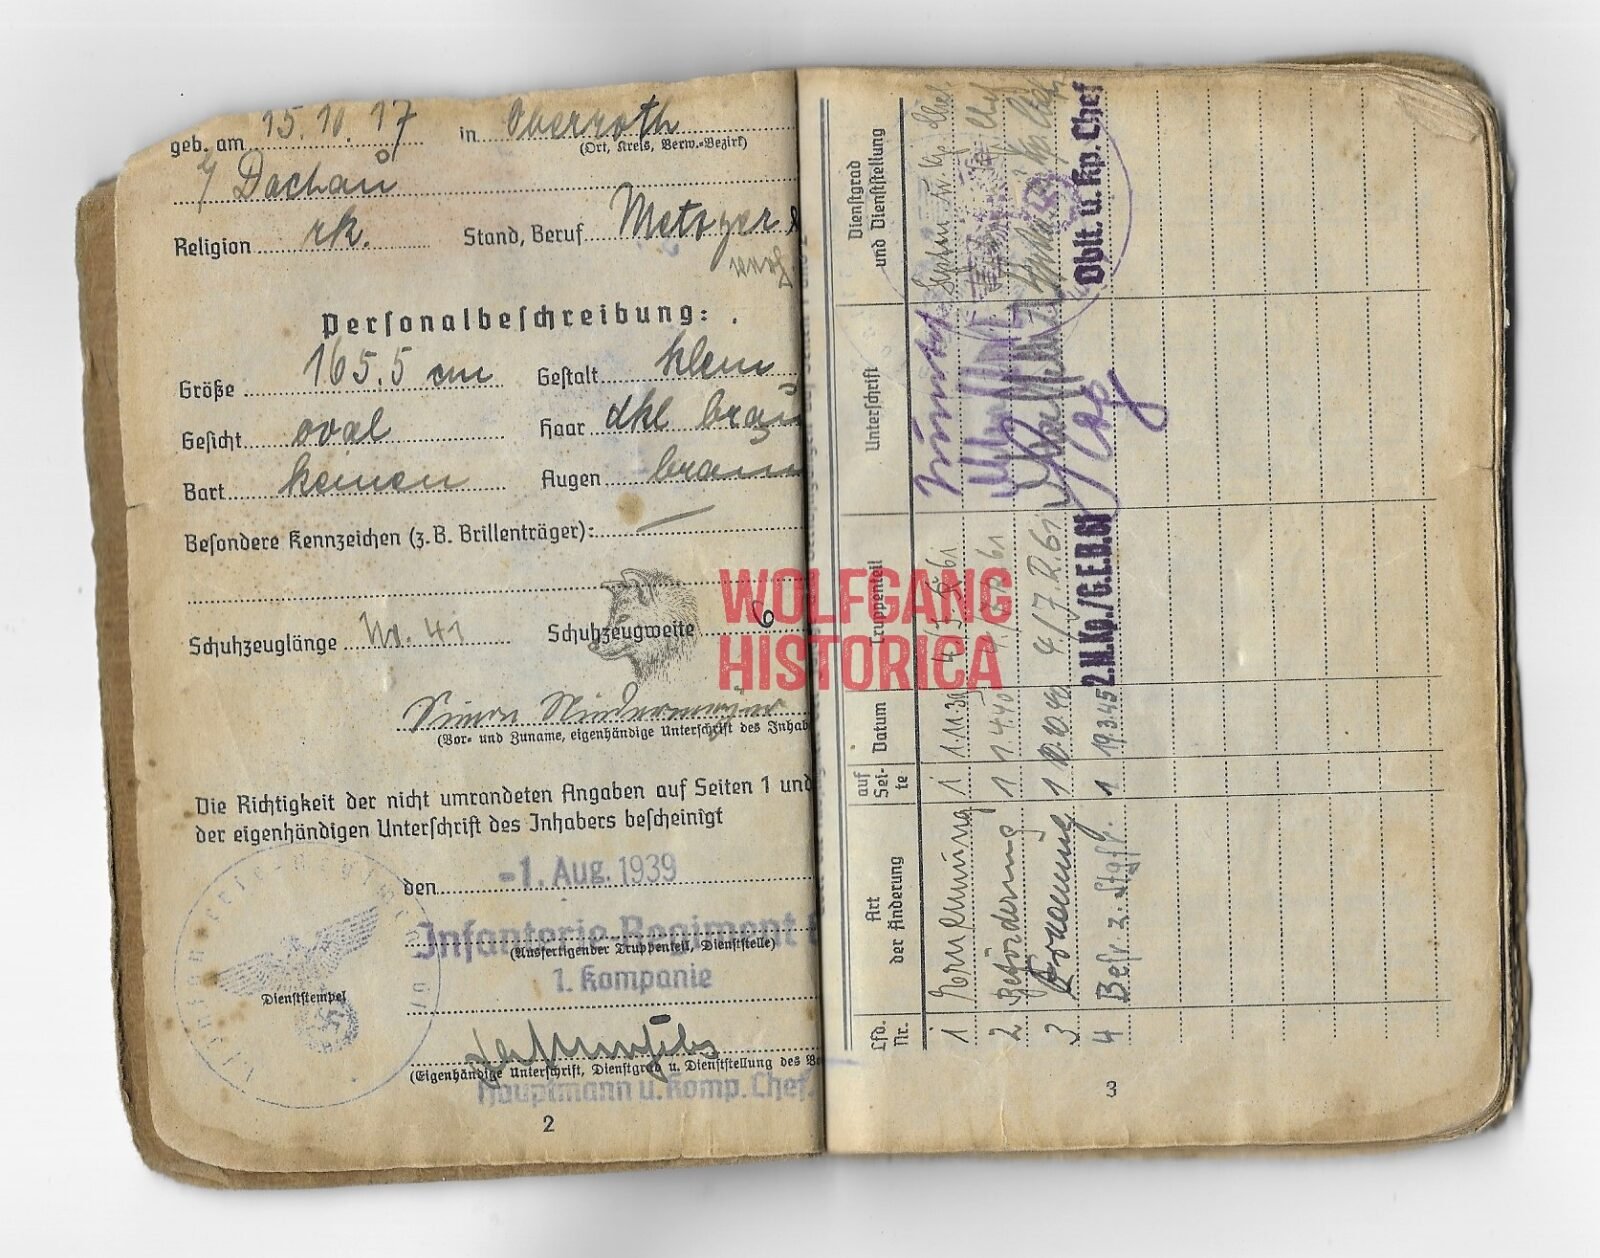 geb. am 15.10.17 in Oberroth
(Ort, Kreis, Verw.-Bezirk)
Dachau
Religion rk. Stand, Beruf Metzger
Personalbeschreibung:
Größe 165.5 cm Gestalt klein
Gesicht oval Haar dkl braun
Bart keinen Augen braun
Besondere Kennzeichen (z.B. Brillenträger): —
Schuhzeuglänge No. 41 Schuhzeugweite 6
Simon Niedermayer
(Vor- und Zuname, eigenhändige Unterschrift des Inhab
Die Richtigkeit der nicht umrandeten Angaben auf Seiten 1 und
der eigenhändigen Unterschrift des Inhabers bescheinigt
den -1. Aug. 1939
Infanterie-Regiment
(Ausfertigender Truppenteil, Dienststelle)
1. Kompanie
Dienststempel
(Eigenhändige Unterschrift, Dienstgrad u. Dienststellung des
Hauptmann u. Komp. Chef.
2
WOLFGANG
HISTORICA
Lfd. Nr. Art der Änderung auf Seite Datum Truppenteil Unterschrift Dienstgrad und Dienststellung
1 Ernennung 1 1.11.39
2 Beförderung 1 1.4.40
3 Ernennung 1 10.10.40
4 Bef. z. Stgfr. 1 19.3.45 2.M.Kp./G.E.B.61 Oblt. u. Kp. Chef
3